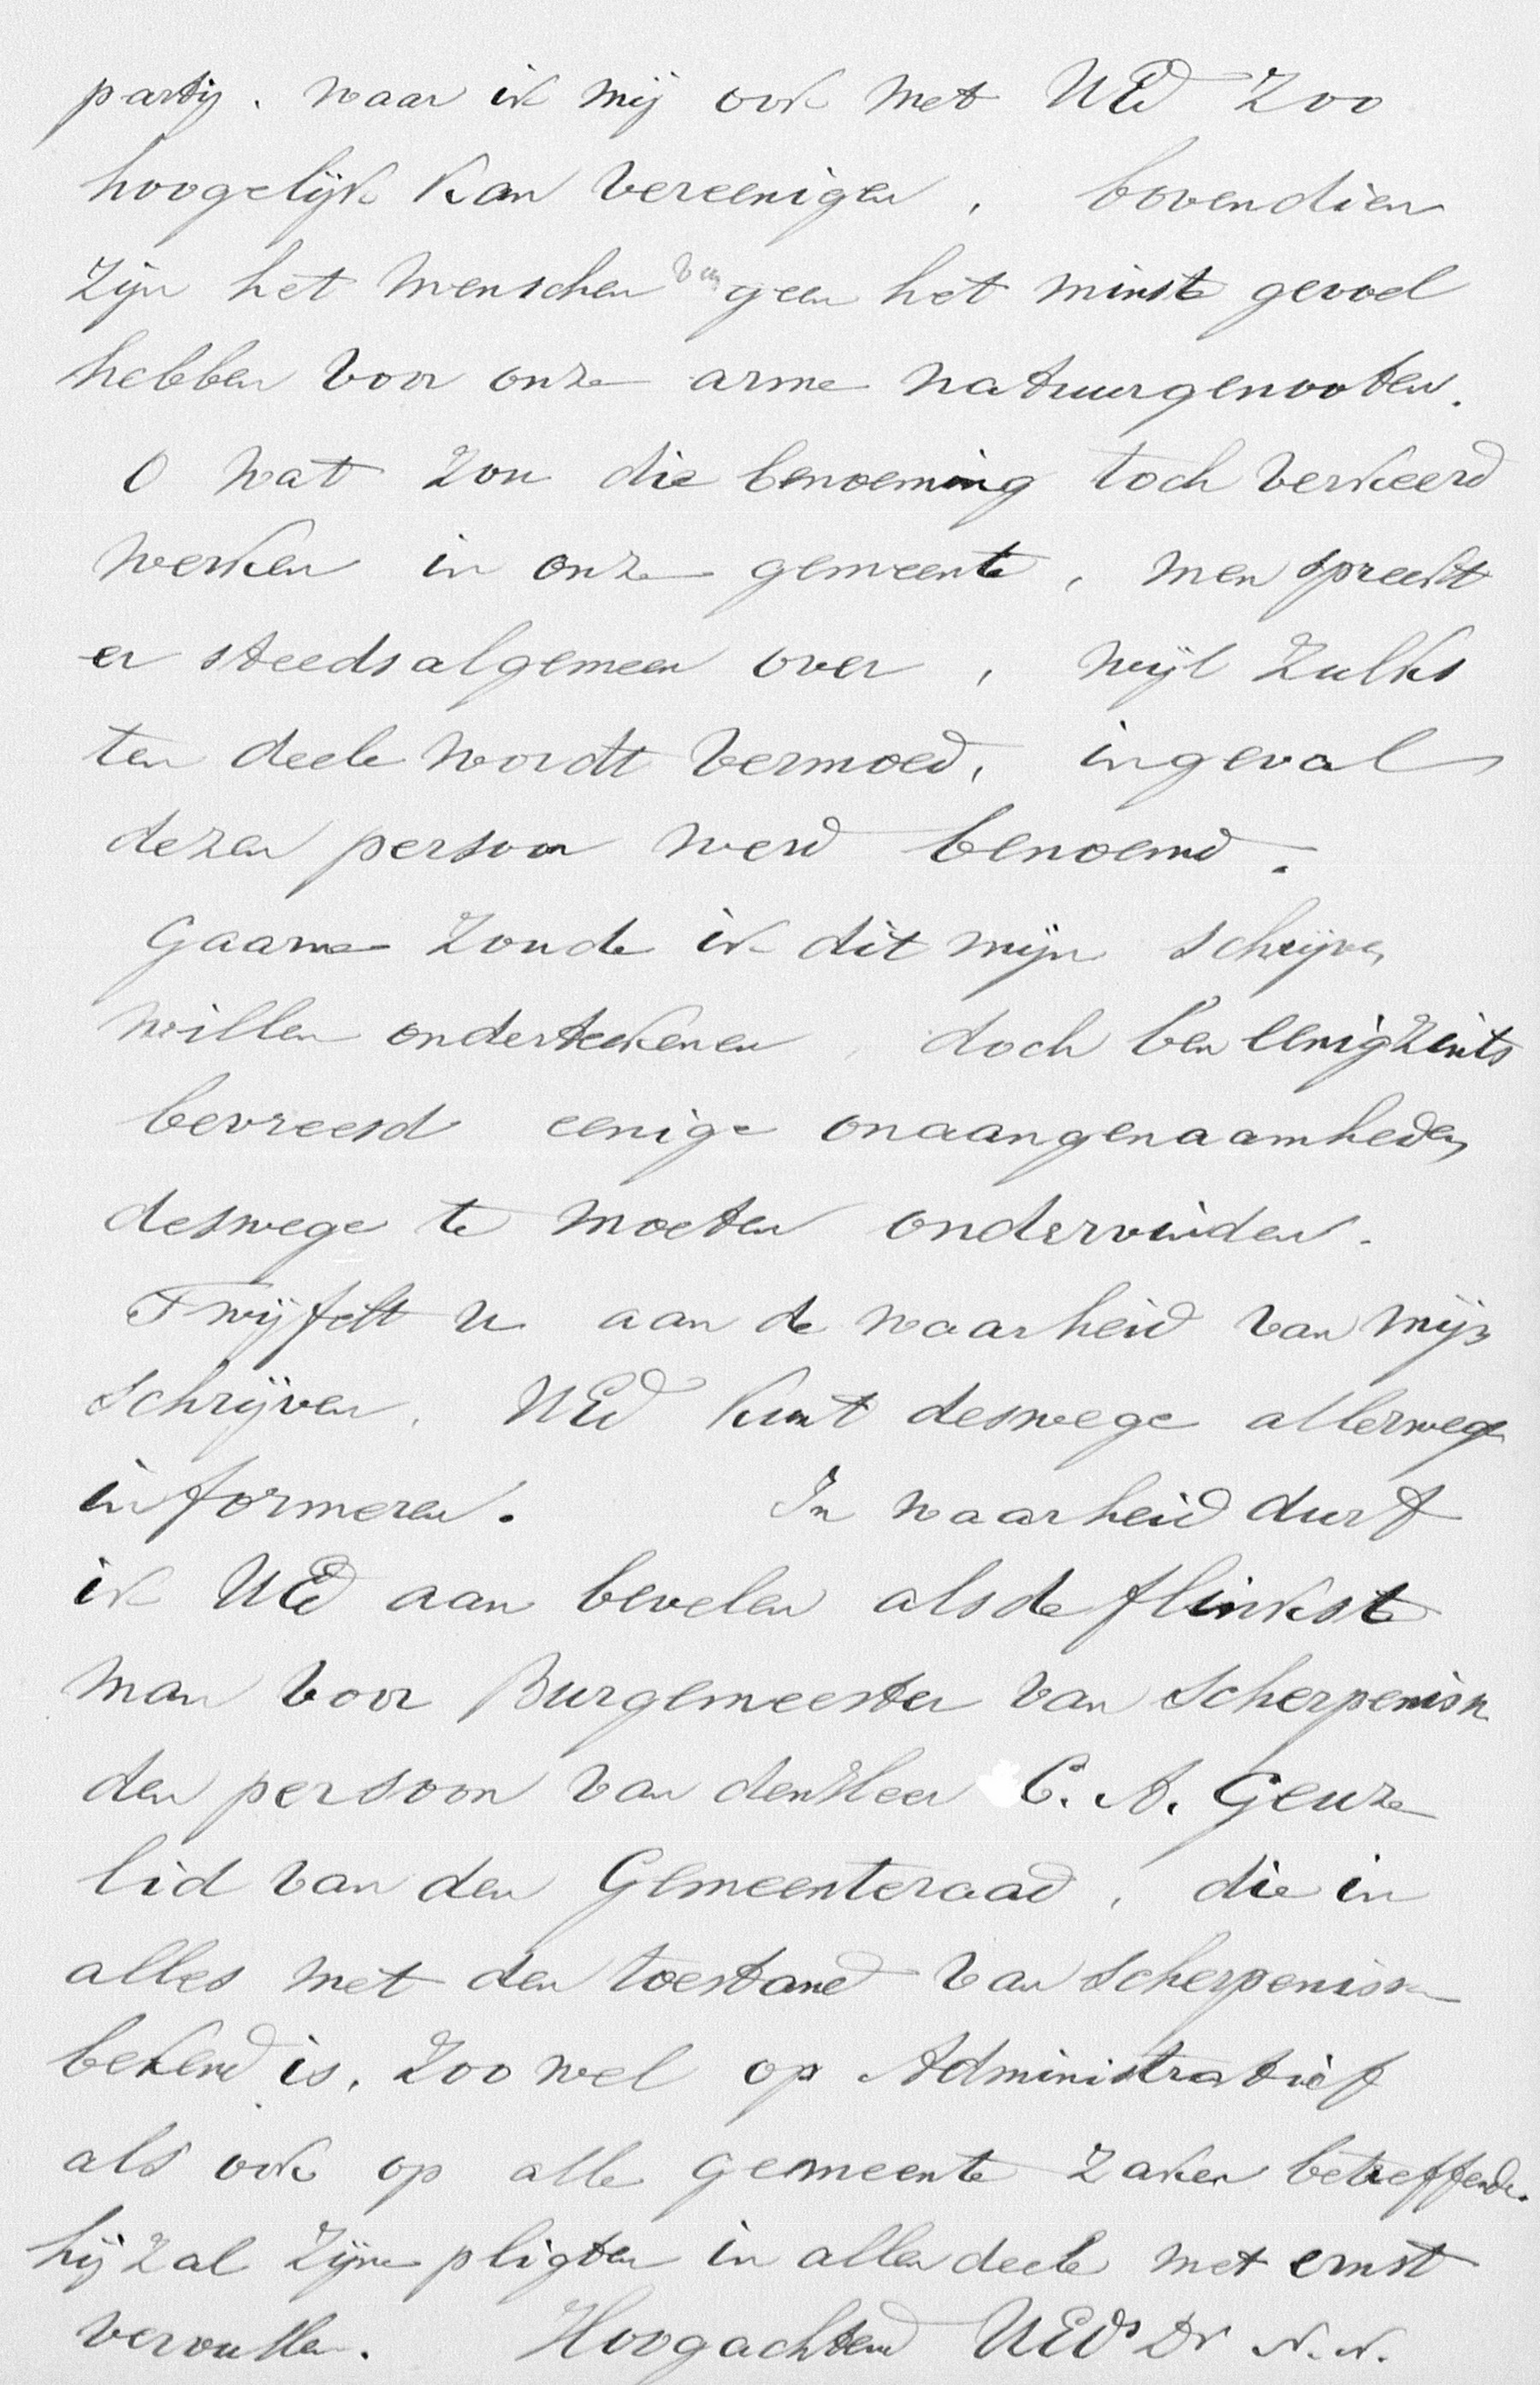 partij. waar ik mij ook met UEd zoo
hoogelijk kan vereenigen, bovendien
zijn het menschen geen het minste gevoel
hebben voor onze arme natuurgenooten.
O wat zou die benoeming toch verkeerd
werken in onze gemeente, men spreekt
er steeds algemeen over, wijl zulks
ten deele wordt vermoed, ingeval
dezen persoon werd benoemd.
Gaarne zoude ik dit mijn schrijven
willen onderteekenen, doch ben eenigzints
bevreesd eenige onaangenaamheden
deswege te moeten ondervinden.
Twijfelt u aan de waarheid van mijn
schrijven, UEd kunt deswege allerwege
informeren. In waarheid durf
ik UEd aan bevelen als de flinkste
man voor Burgemeester van Scherpenisse
den persoon van den Heer C. A. Geuze
lid van den Gemeenteraad, die in
alles met den toestand van Scherpenisse
bekend is, zoo wel op Administratief
als ook op alle gemeente zaken betreffende.
hij zal zijne pligten in allen deele met ernst
vervullen. Hoogachtend UEds Dr N.N.